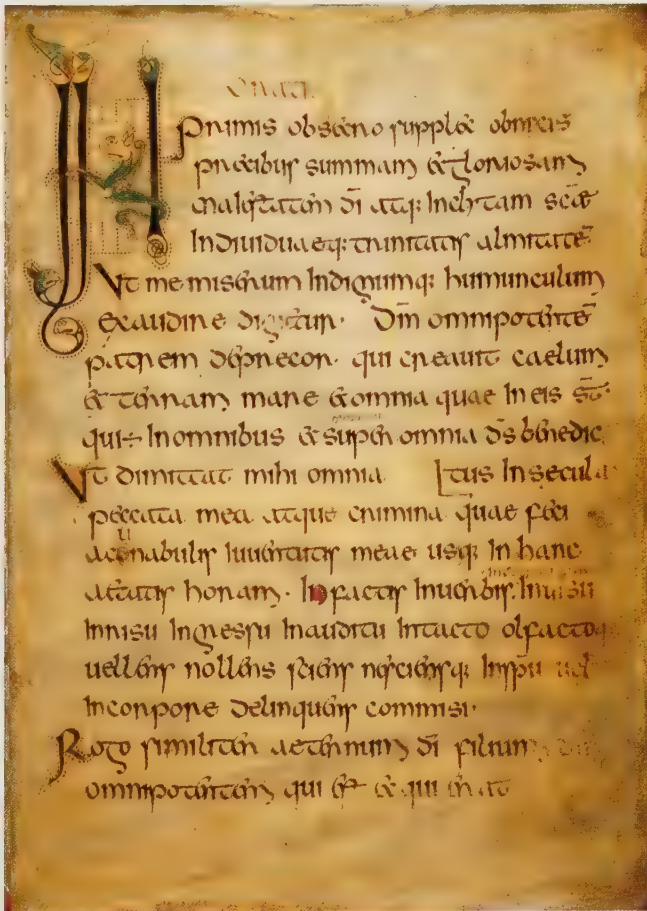 INprimis obsecro supplex obnixis
precibus summam & gloriosam
maiestatem dī atq: inclytam scae
indiuiduaeq: trinitatis almitatē
Ut me miserum indignumq: humunculum
exaudire dignetur· Dm̄ omnipotentē
patrem deprecor· qui creauit caelum
& terram mare & omnia quae in eis st̄·
qui÷ in omnibus & super omnia ds̄ benedic
Ut dimittat mihi omnia [tus in secula
peccata mea atque crimina quae feci
acunabulis iuuentutis meae usq: in hanc
aetatis horam· In factis in uerbis· In uisu
in risu in gressu in auditu in tacto olfactoq:
uellens nollens sciens nesciensq: in spū uel
in corpore delinquens commisi·
Rogo similiter aeternum dī filium
omnipotentem qui est & qui erat